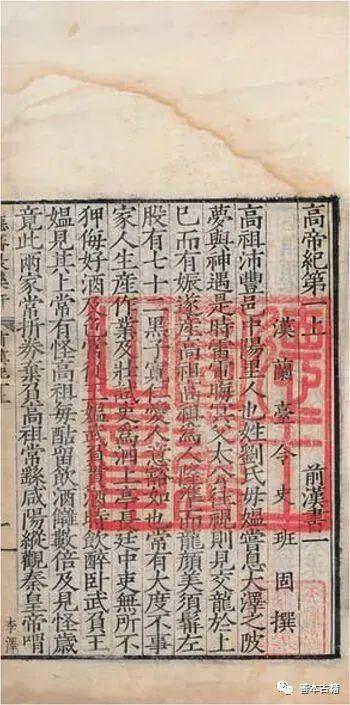 高帝紀第一上　前漢書一
漢蘭臺令史班固撰
高祖沛豐邑中陽里人也姓劉氏毋媼嘗息大澤之陂
夢與神遇是時雷電晦冥父太公往視則見交龍於上
已而有娠遂産高祖高祖爲人隆準而龍顏美須髯左
股有七十二黑子寬仁愛人意豁如也常有大度不事
家人生産作業及壯試吏爲泗上亭長廷中吏無所不
狎侮好酒及色常從王媼武負貰酒時飲醉臥武負王
媼見其上常有怪高祖每酤留飲酒讎數倍及見怪歲
竟此兩家常折券棄負高祖常繇咸陽縱觀秦皇帝喟
一
李澤
善本古籍